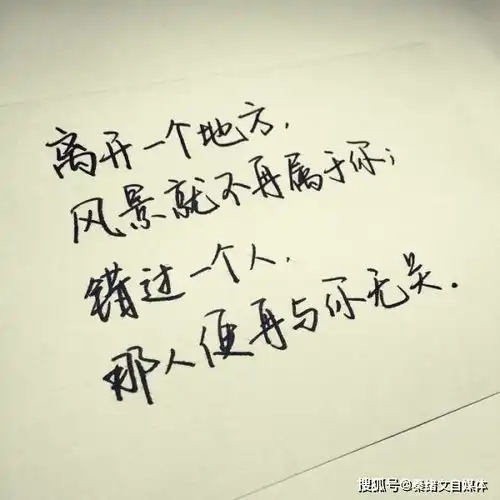 离开一个地方,
风景就不再属于你;
错过一个人,
那人便再与你无关.
搜狐号@秦绪文自媒体